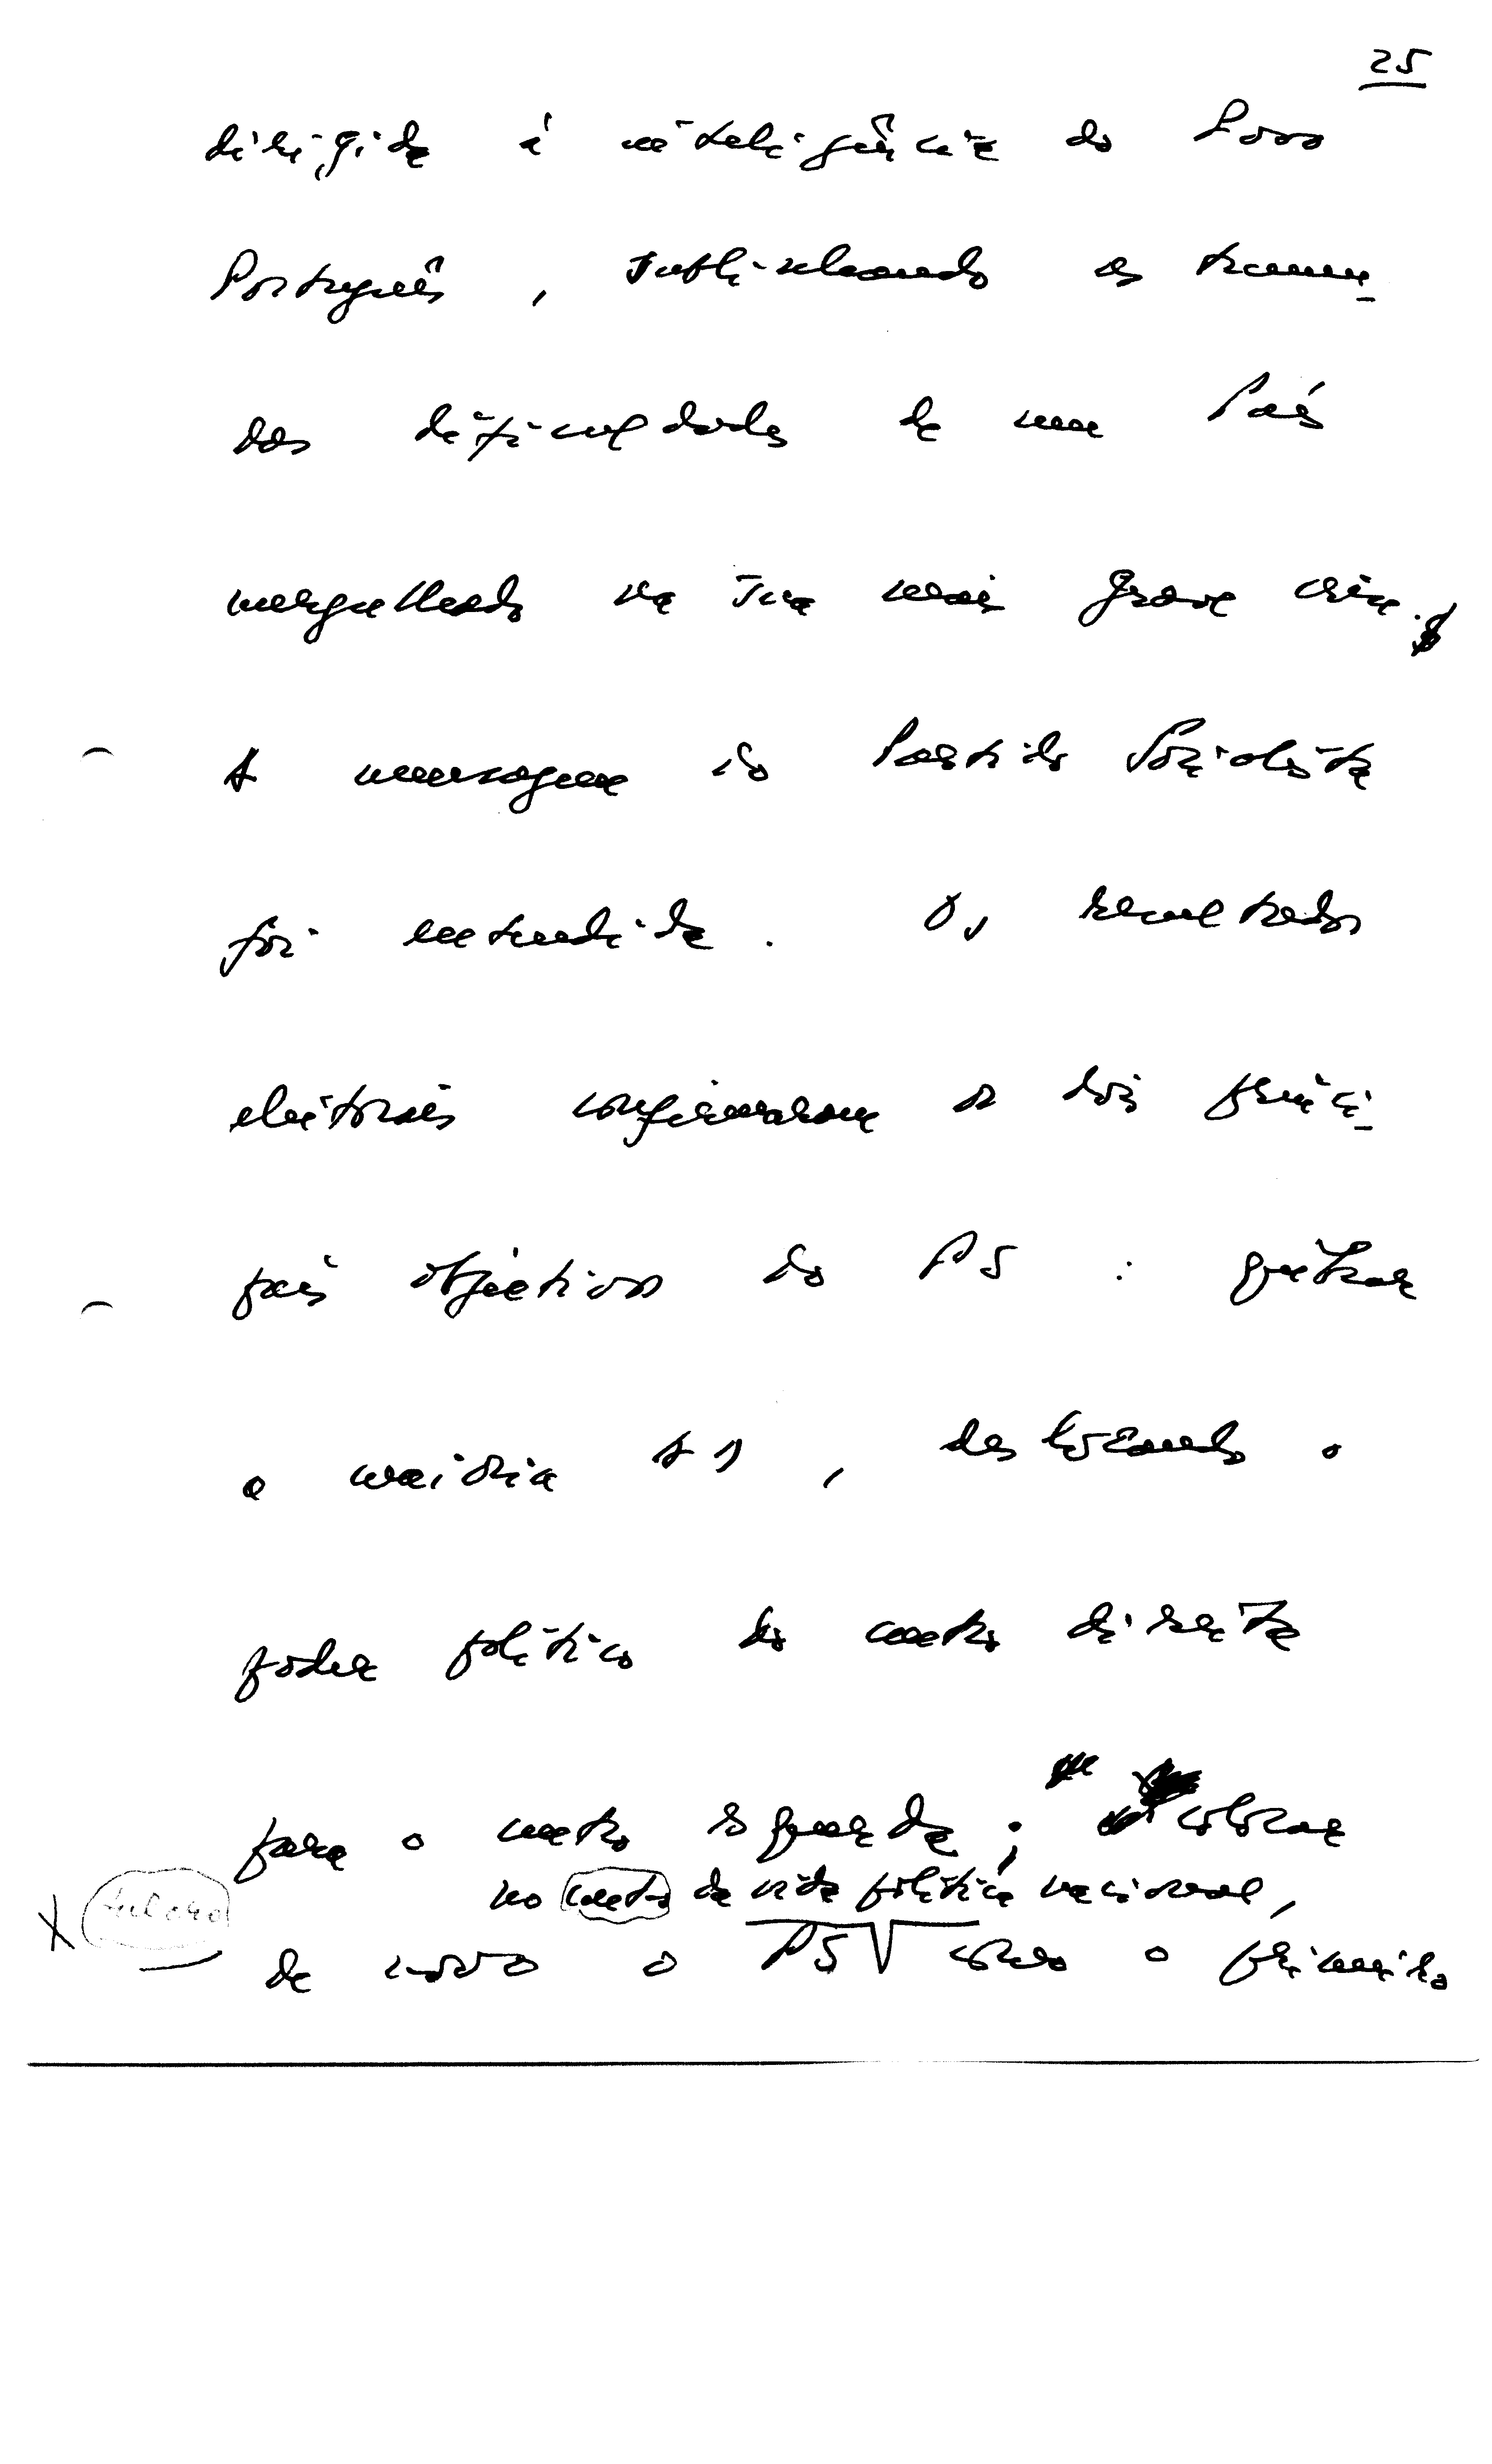 25
dirigida à inteligência do Povo
Português, sublinhando as tremen-
das dificuldades de um País
mergulhado na sua mais grave crise.
A mensagem do Partido Socialista
foi entendida. Os resultados
eleitorais confirmaram os dois princi-
pais objectivos do PS: quebrar
a maioria AD, deslocando o
poder político do centro direita
para o centro esquerda; colocar
no centro da vida política nacional,
de novo o PS como o primeiro